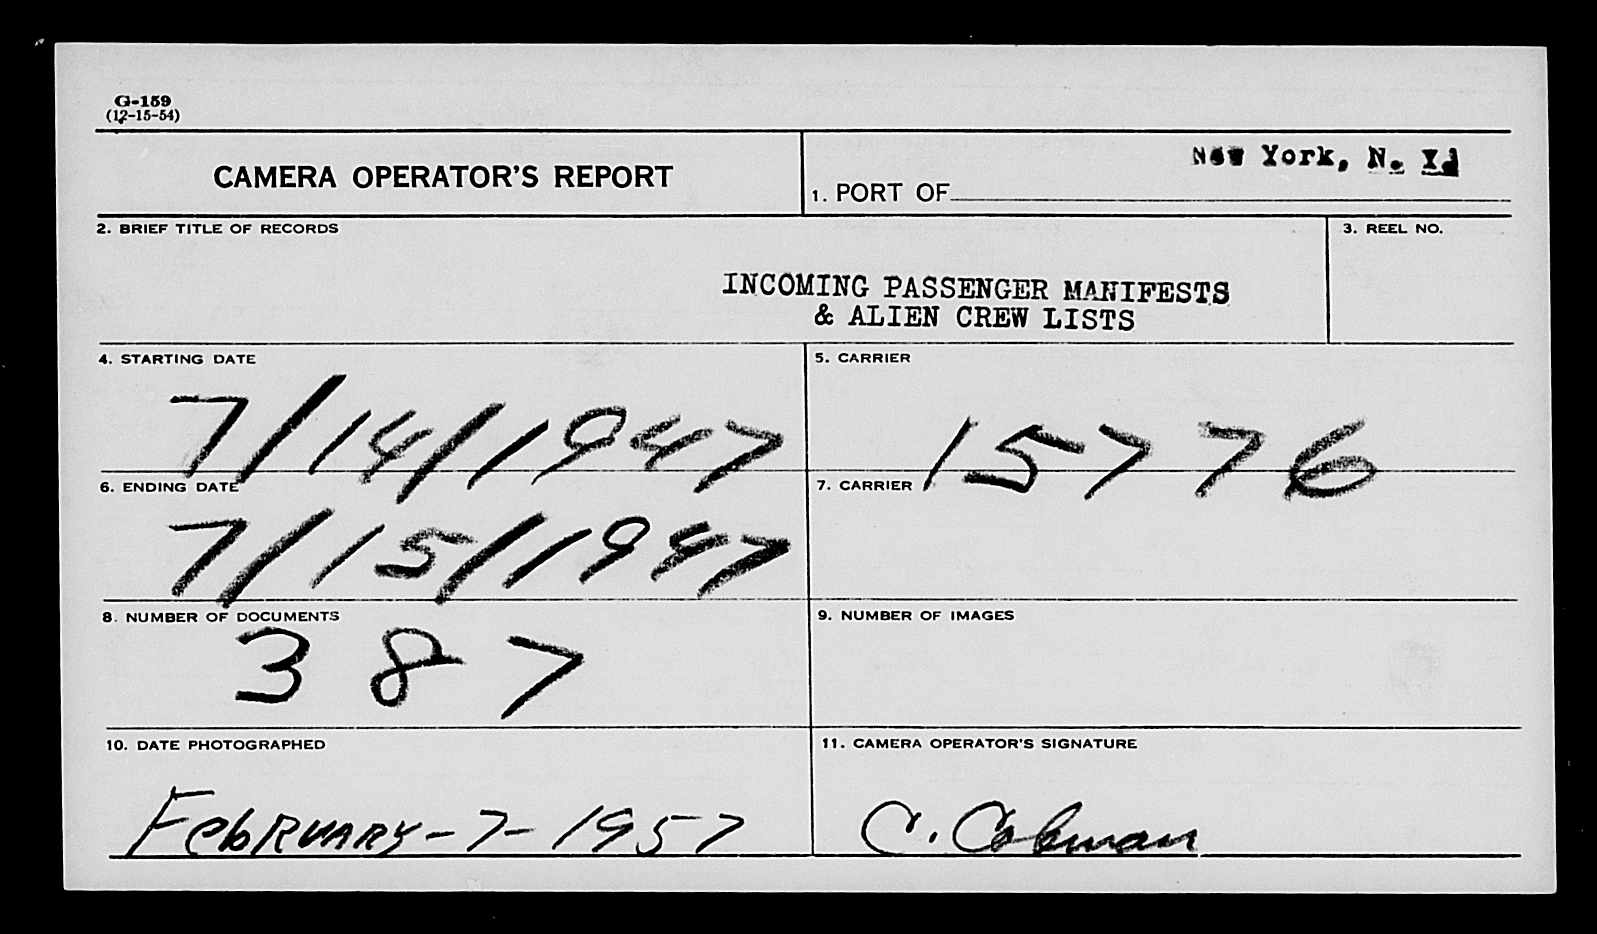 G-159
(12-15-54)
CAMERA OPERATOR'S REPORT
1. PORT OF New York, N. Y.
2. BRIEF TITLE OF RECORDS
INCOMING PASSENGER MANIFESTS
& ALIEN CREW LISTS
3. REEL NO.
4. STARTING DATE
7/14/1947
5. CARRIER
15776
6. ENDING DATE
7/15/1947
7. CARRIER
8. NUMBER OF DOCUMENTS
387
9. NUMBER OF IMAGES
10. DATE PHOTOGRAPHED
FebRUARY-7-1957
11. CAMERA OPERATOR'S SIGNATURE
C. Coleman